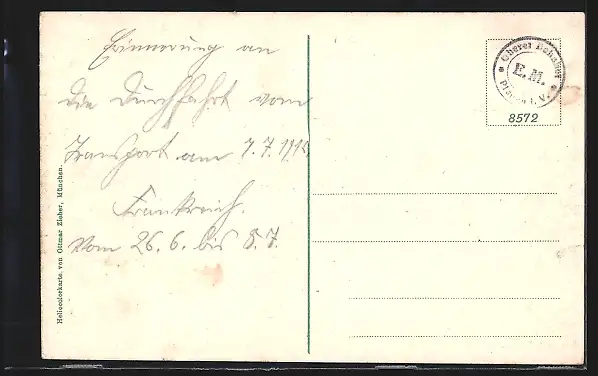 Erinnerung an
die Durchfahrt vom
Transport am 7.7.191
Frankreich.
Vom 26.6. bis 8.7.
Oberer Bahnhof
E. M.
i. V.
8572
Heliocolorkarte von Ottmar Zieher, München.